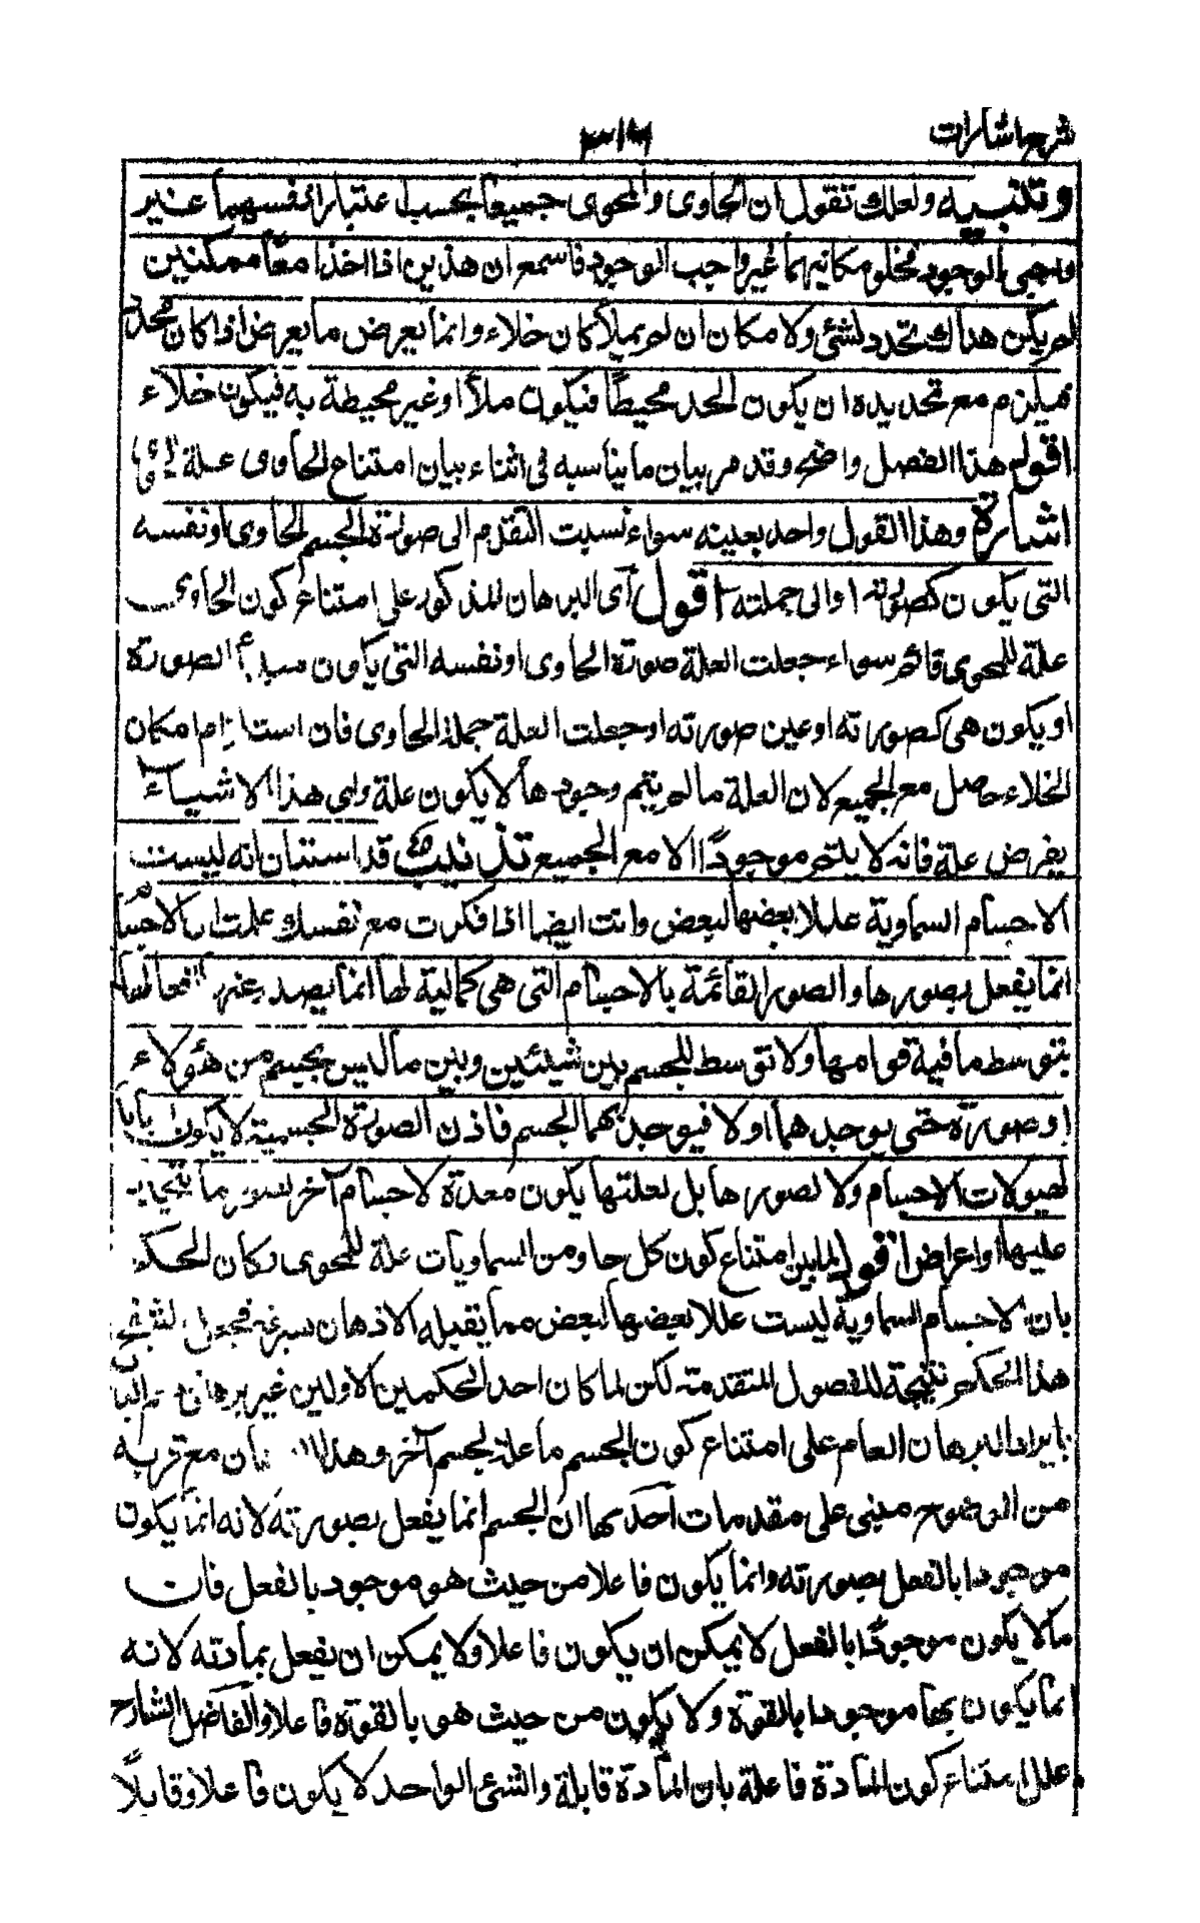 شرح اشارات
وتنبيه ولعلك تقول ان الحاوى والمحوى جميعا بحسب اعتبار انفسهما غير
واجبى الوجود فخلو مكانيهما غير واجب الوجود فاسمع ان هذين اذا اخذا معا ممكنين
لم يكن هناك تحدد لشئ ولا مكان ان لم يملأ كان خلاء وانما يعرض ما يعرض اذا كان محدد
فيلزم مع تحديده ان يكون الحد محيطا فيكون ملأ او غير محيطة به فيكون خلاء
اقول هذا الفصل واضح وقد مر بيان ما يناسبه فى اثناء بيان امتناع الحاوى علة
اشارة وهذا القول واحد بعينه سواء نسبت التقدم الى صورة الجسم الحاوى او نفسه
التى يكون كصورته او الى جملته اقول اى البرهان المذكور على امتناع كون الحاوى
علة للمحوى قائم سواء جعلت العلة صورة الحاوى او نفسه التى يكون مبدأ الصورة
او يكون هى كصورته او عين صورته او جعلت العلة جملة الحاوى فان استلزام امكان
الخلاء حاصل مع الجميع لان العلة ما لم يتم وجودها لا يكون علة واى هذا الاشياء
يفرض علة فانه لا يتم موجودًا الا مع الجميع تذنيب قد استبان انه ليست
الاجسام السماوية عللا بعضها لبعض وانت ايضا اذا فكرت مع نفسك علمت ان الاجسام
انما يفعل بصورها والصور القائمة بالاجسام التى هى كمالية لها انما يصدر عنها افعالها
بتوسط ما فيه قوامها ولا توسط للجسم بين شيئين وبين ما ليس بجسم من هؤلاء
او صورة حتى يوجدهما اولا فيوجد بهما الجسم فاذن الصورة الجسمية لا يكون
لهيولات الاجسام ولا لصورها بل لعلتها يكون معدة لاجسام آخر لصور ما يتجدد
عليها او اعراض اقول لما بين امتناع كون كل حاو من السماويات علة للمحوى وكان الحكم
بان الاجسام السماوية ليست عللا بعضها لبعض مما يقبله الاذهان بسرعة فجعل
هذا الحكم نتيجة للفصول المتقدمة لكن لما كان احد الحكمين الاولين غير برهانى
بايراد البرهان العام على امتناع كون الجسم ما علة لجسم آخر وهذا مع قربه
من الوضوح مبنى على مقدمات احديها ان الجسم انما يفعل بصورته لانه انما يكون
موجودا بالفعل بصورته وانما يكون فاعلا من حيث هو موجود بالفعل فان
ما لا يكون موجودًا بالفعل لا يمكن ان يكون فاعلا ولا يمكن ان يفعل بمادته لانه
انما يكون بها موجودا بالقوة ولا يكون من حيث هو بالقوة فاعلا والفاضل الشارح
علل امتناع كون المادة فاعلة بان المادة قابلة والشئ الواحد لا يكون فاعلا وقابلًا